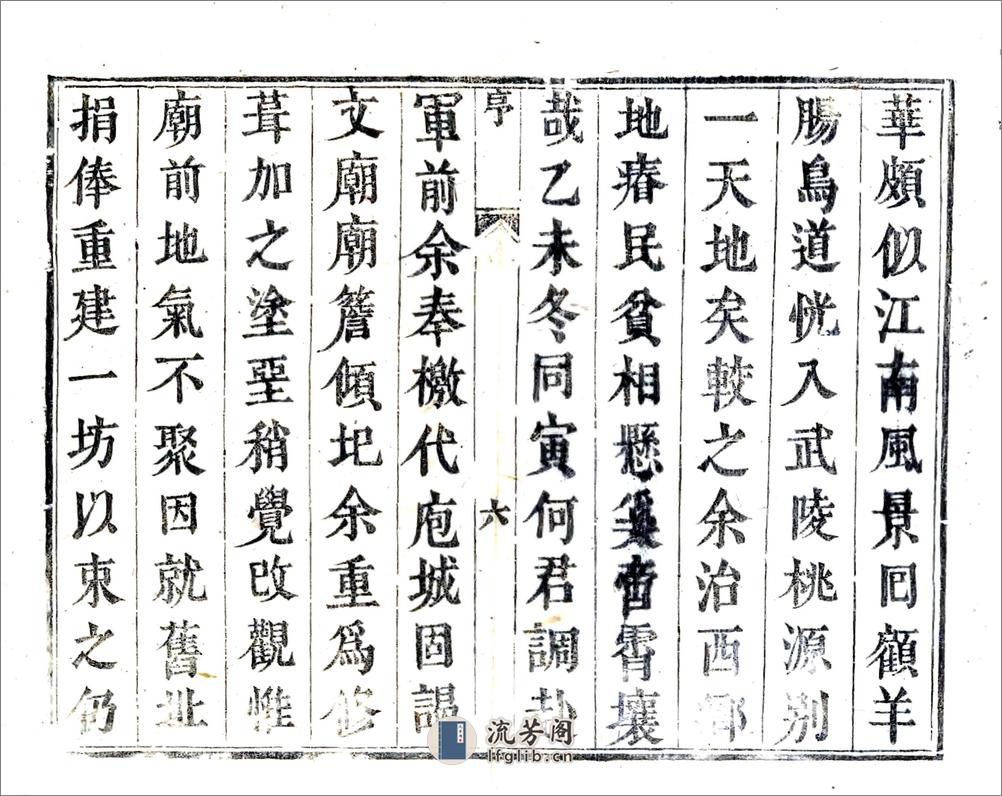 華頗似江南風景囘顧羊
腸鳥道恍入武陵桃源别
一天地矣較之余治西鄉
地瘠民貧相懸奚啻霄壤
哉乙未冬同寅何君調赴
六
軍前余奉檄代庖城固謁
文廟廟簷傾圯余重爲修
葺加之塗堊稍覺改觀惟
廟前地氣不聚因就舊址
捐俸重建一坊以束之仍
流芳阁
lfglib.cn